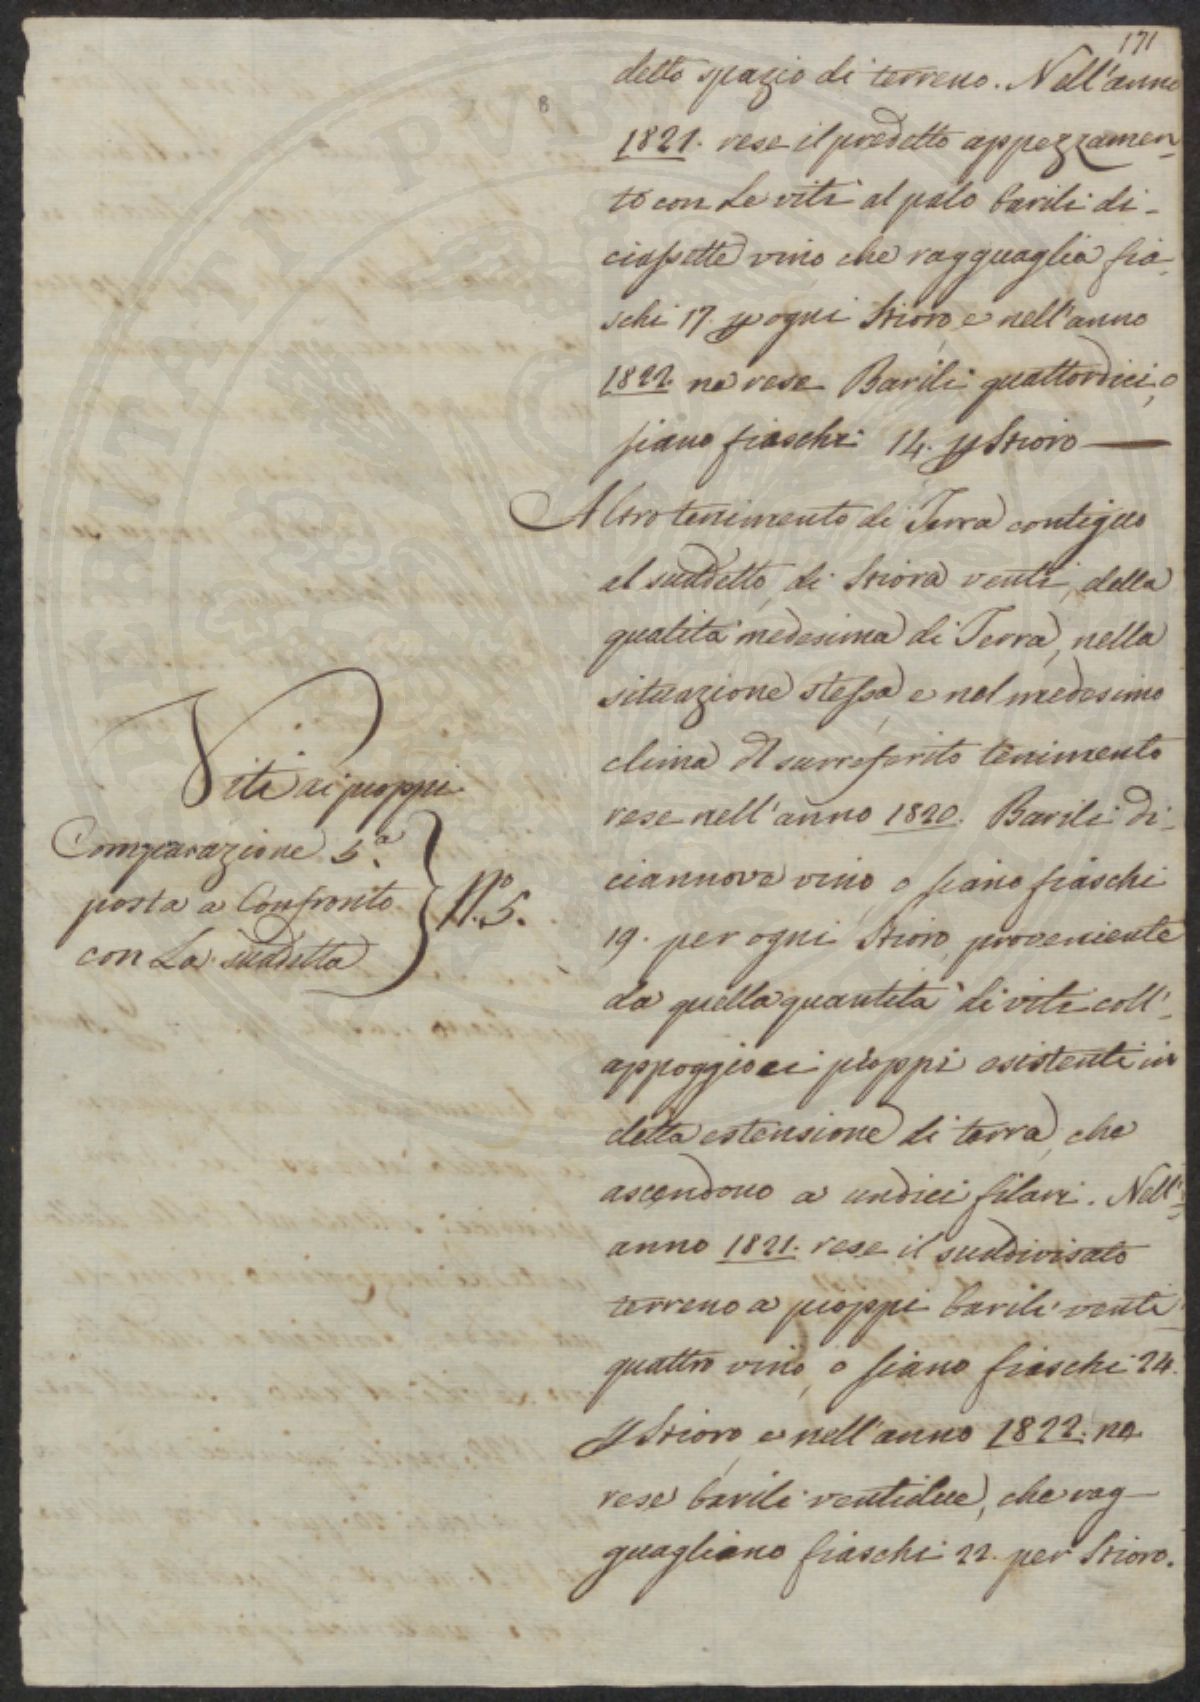 171
8
detto spazio di terreno. Nell'anno
1821. rese il predetto appezzamen=
to con Le viti al palo barili di-
ciassette vino che ragguaglia fia-
schi 17. p ogni Stioro, e nell'anno
1822. ne rese Barili quattordici, o
siano fiaschi 14. p Stioro
Altro tenimento di Terra contiguo
al suddetto, di Stiora venti, della
qualità medesima di Terra, nella
situazione stessa, e nel medesimo
clima del surreferito tenimento
rese nell'anno 1820. Barili di-
ciannove vino, o siano fiaschi
19. per ogni Stioro, proveniente
da quella quantità di viti coll'-
appoggio ai pioppi esistenti in
detta estensione di terra, che
ascendono a undici filari. Nell'=
anno 1821. rese il suddivisato
terreno a pioppi barili venti
quattro vino, o siano fiaschi 24.
p Stioro, e nell'anno 1822. ne
rese barili ventidue, che rag-
guagliano fiaschi 22. per Stioro.
Viti ai pioppi
Comparazione 5.a
posta a Confronto
con La suddetta
N.o 5.